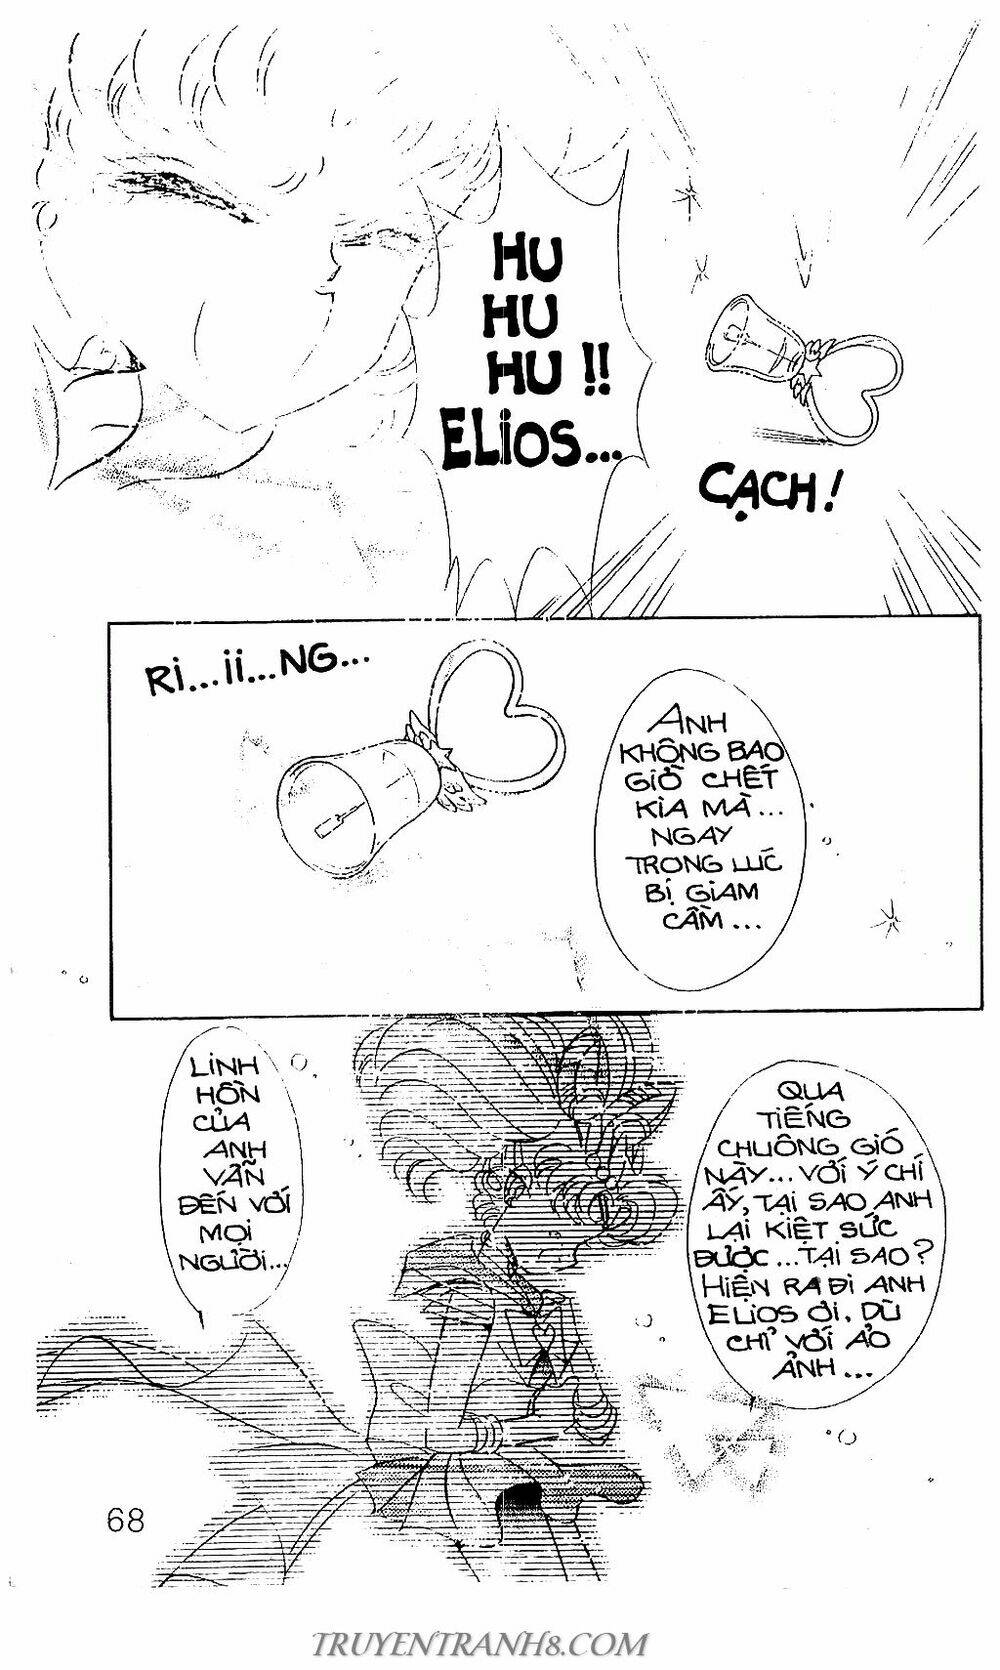 HU
HU
HU!!
ELiOS...
CẠCH!
Ri...ii...NG...
ANH
KHÔNG BAO
GIỜ CHẾT
KÌA MÀ...
NGAY
TRONG LÚC
BỊ GIAM
CẦM...
LINH
HỒN
CỦA
ANH
VẪN
ĐẾN VỚI
MỌI
NGƯỜI...
QUA
TIẾNG
CHUÔNG GIÓ
NÀY... VỚI Ý CHÍ
ẤY, TẠI SAO ANH
LẠI KIỆT SỨC
ĐƯỢC... TẠI SAO?
HIỆN RA ĐI ANH
ELIOS ƠI. DÙ
CHỈ VỚI ẢO
ẢNH...
68
TRUYENTRANH8.COM